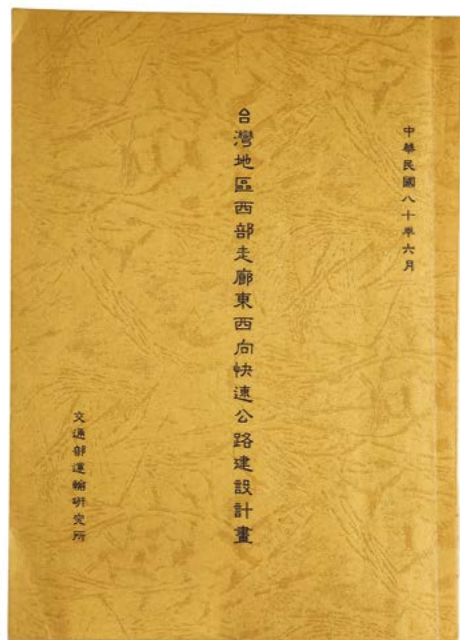 中華民國八十年六月
台灣地區西部走廊東西向快速公路建設計畫
交通部運輸研究所